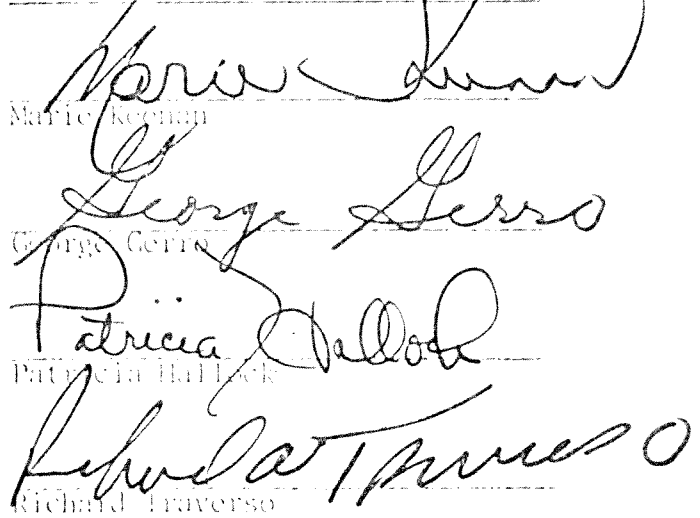 Marie Keenan
Marie Keenan
George Gerro
George Gerro
Patricia Hallock
Patricia Hallock
Richard A Traverso
Richard Traverso